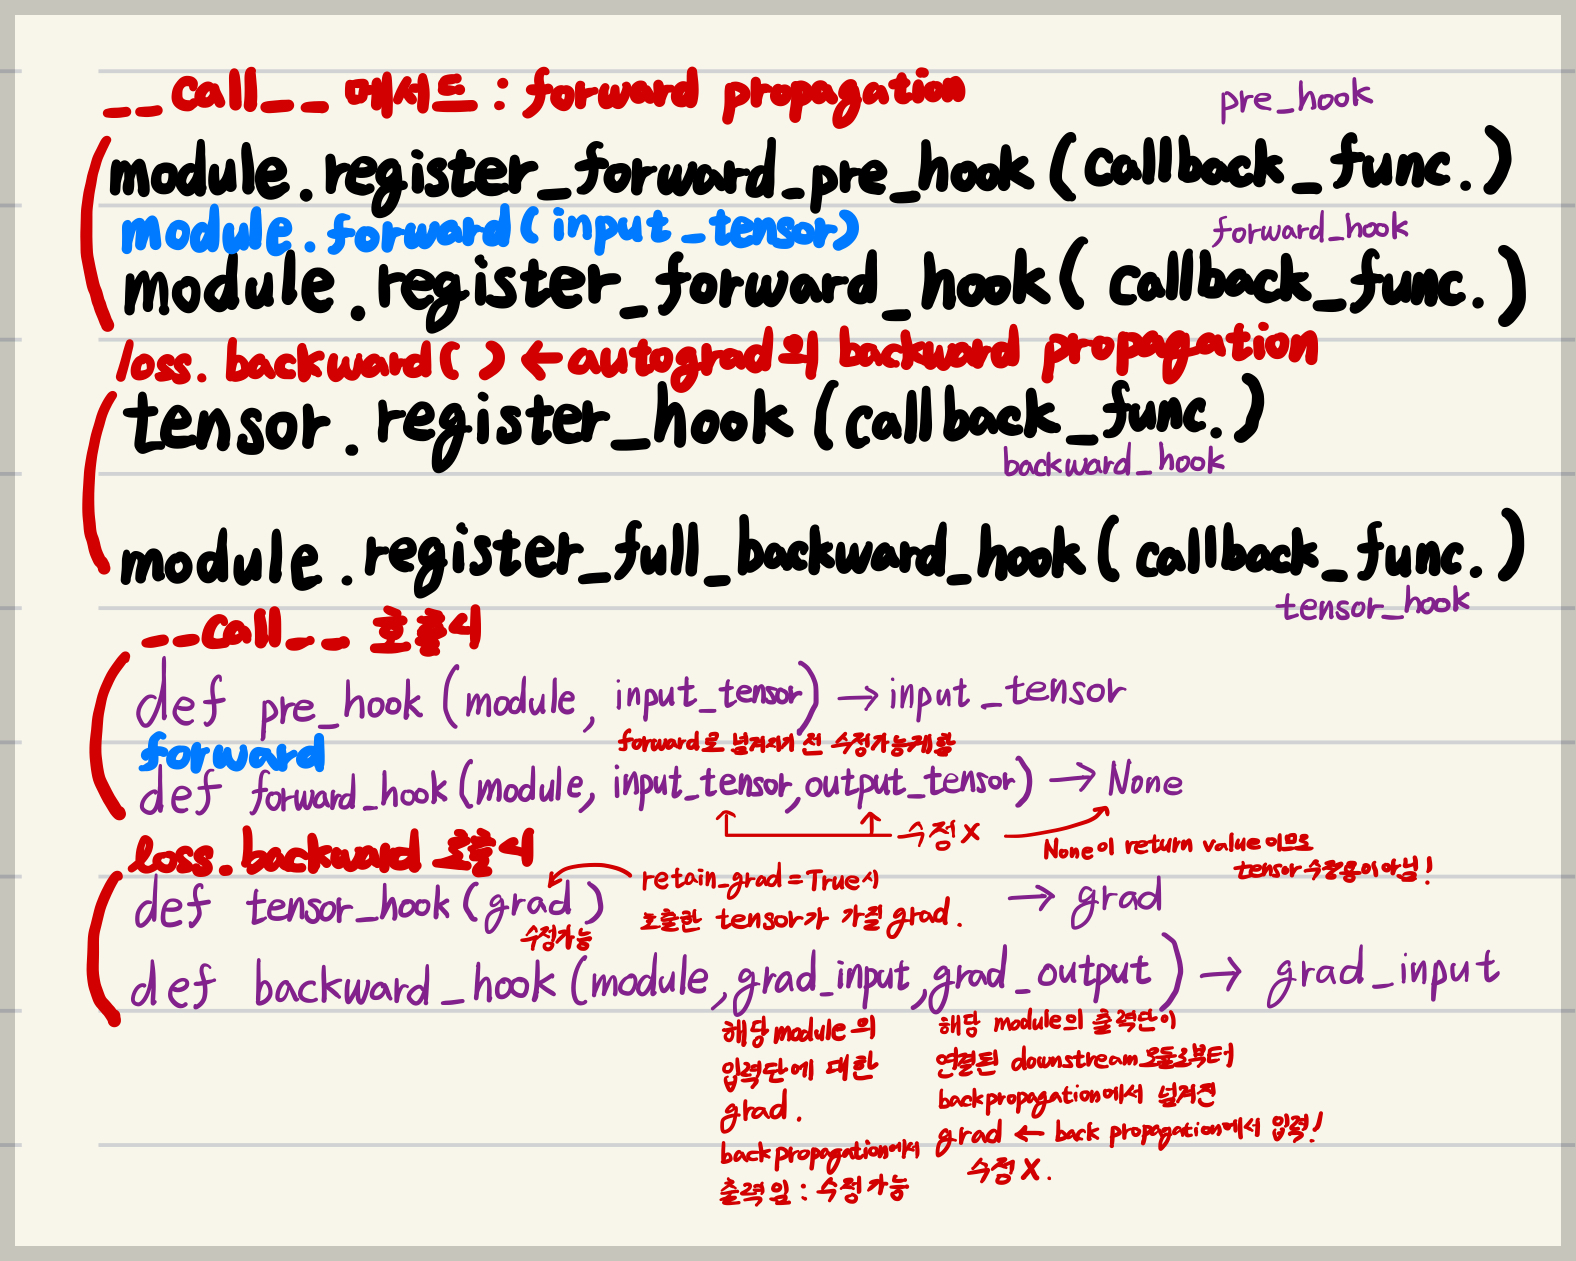 __call__ 메서드 : forward propagation
pre_hook
module.register_forward_pre_hook(callback_func.)
module.forward(input_tensor)
forward_hook
module.register_forward_hook(callback_func.)
loss.backward() ← autograd의 backward propagation
tensor.register_hook(callback_func.)
backward_hook
module.register_full_backward_hook(callback_func.)
tensor_hook
__call__ 호출시
def pre_hook(module, input_tensor) → input_tensor
forward로 넘겨지기 전 수정가능케함
forward
def forward_hook(module, input_tensor, output_tensor) → None
수정 X
None이 return value 이므로
tensor 수출용이 아님!
loss.backward 호출시
retain_grad = True시
def tensor_hook(grad) → grad
호출한 tensor가 가질 grad.
수정가능
def backward_hook(module, grad_input, grad_output) → grad_input
해당 module의
입력단에 대한
grad.
back propagation에서
출력임 : 수정가능
해당 module의 출력단이
연결된 downstream모듈로부터
backpropagation에서 넘겨진
grad ← back propagation에서 입력!
수정 X.